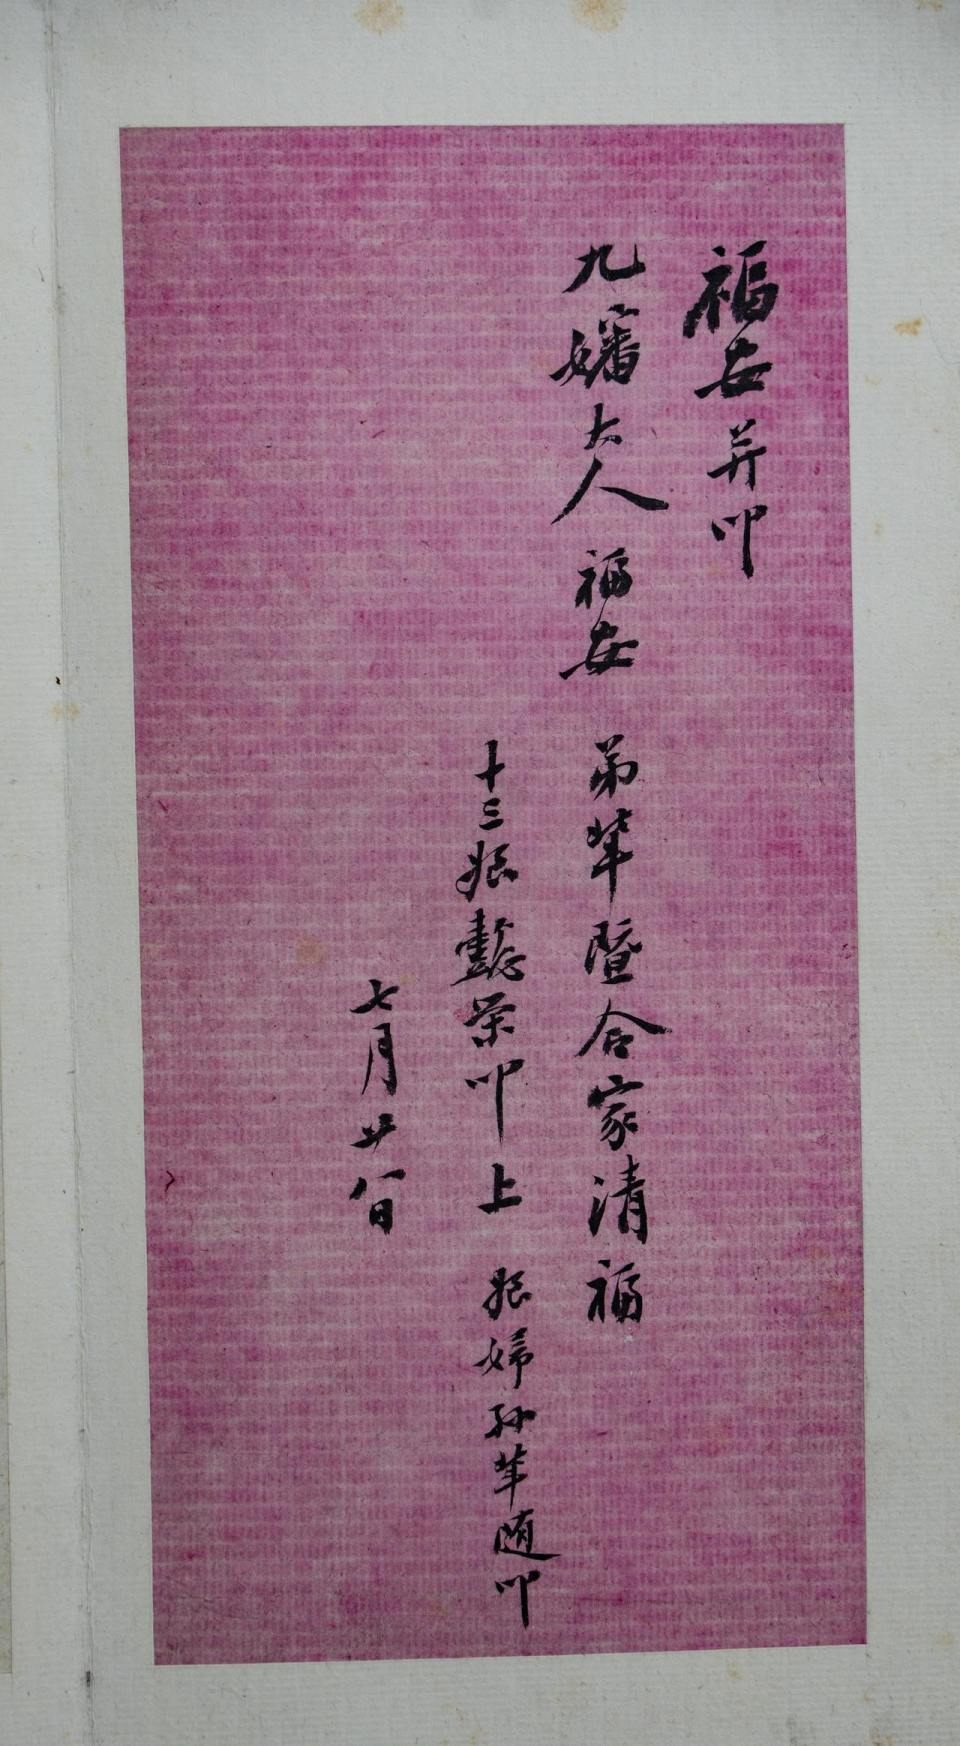 福安并叩
九嬸大人 福安 弟輩暨合家清福
十三姪懿荣叩上 姪婦孙輩随叩
七月廿八日